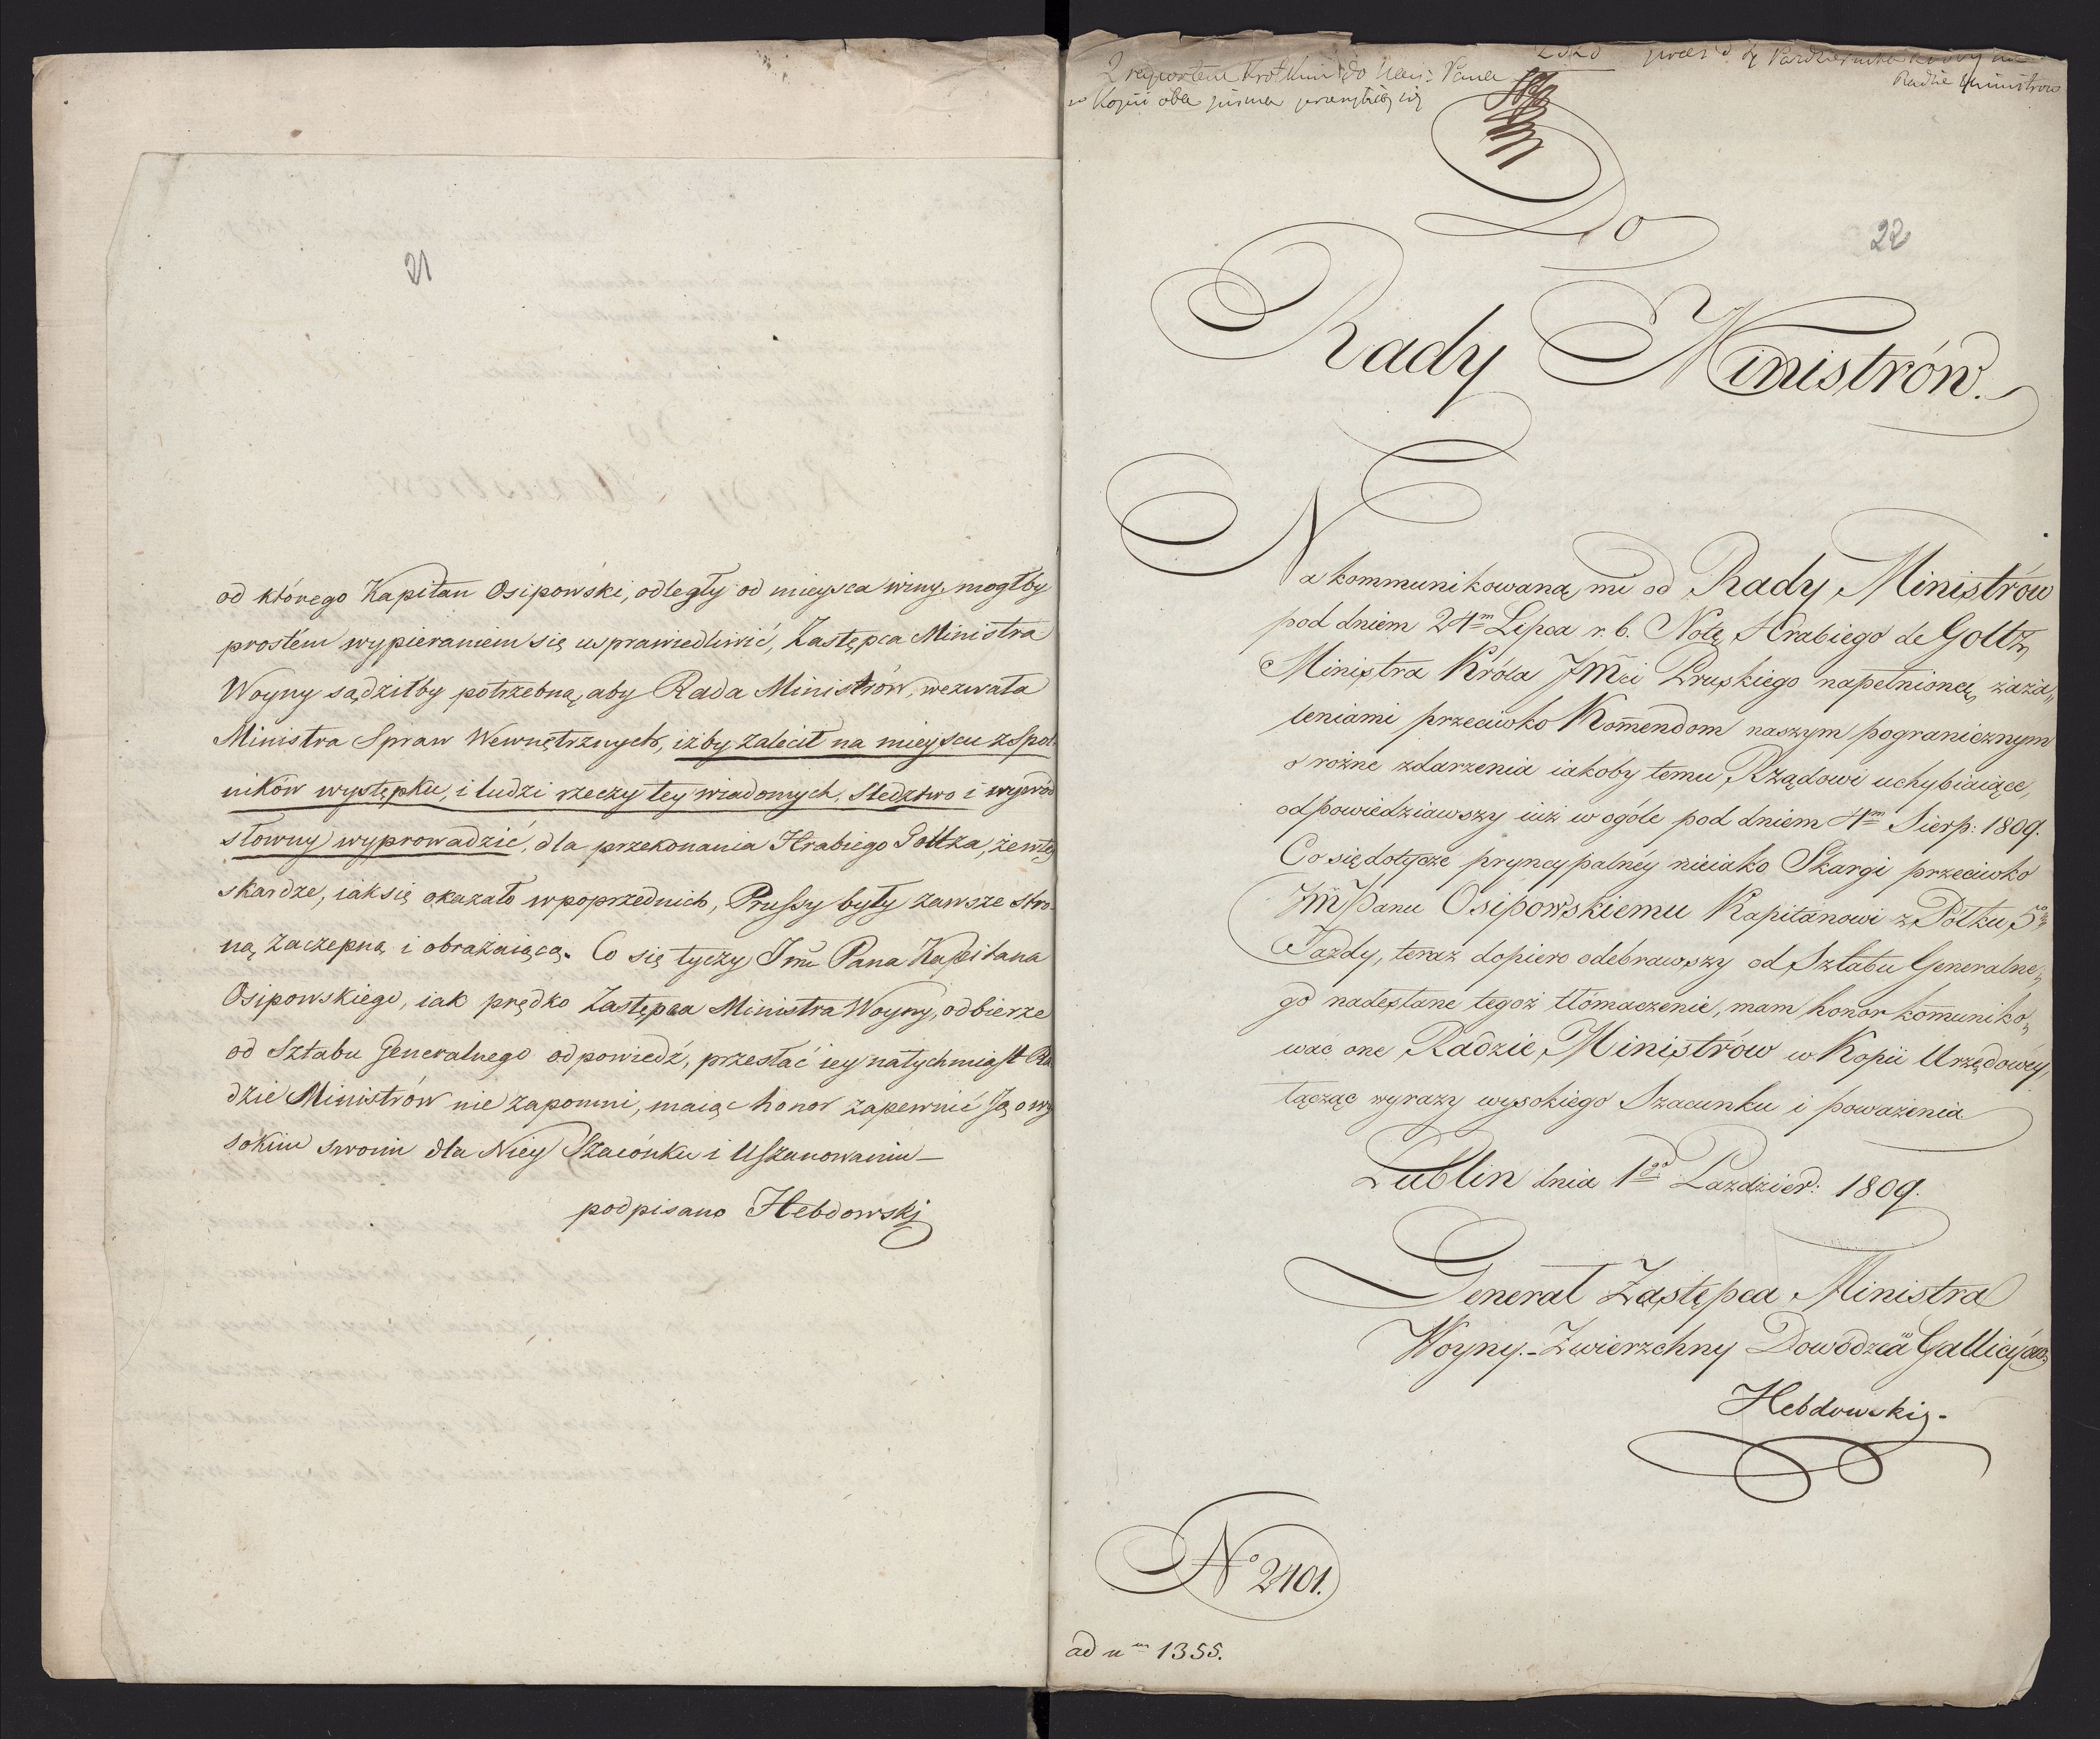 21
od którego Kapitan Osipowski, odległy od mieysca winy, mogłby
prostém wypieraniem się usprawiedliwić, Zastępca Ministra
Woyny sądziłby potrzebną, aby Rada Ministrów, wezwała
Ministra Spraw Wewnętrznych, iżby zalecił na mieyscu z spól-
ników występku, i ludzi rzeczy tey wiadomych, Sledztwo i wywód
słowny wyprowadzić, dla przekonania Hrabiego Goltza, że w tey
skardze, iak się okazało w poprzednich, Prussy były zawsze stro-
ną zaczepną i obrażaiącą. Co się tyczy Jmć Pana Kapitana
Osipowskiego, iak prędko Zastępca Ministra Woyny, odbierze
od Sztabu Generalnego odpowiedź, przesłać iey natychmiast Ra
dzie Ministrów nie zapomni, maiąc honor zapewnić Ją o wy
sokim swoim dla Niey Szacónku i Uszanowaniu —
podpisano Hebdowskj
2 raportem do Pana
w Kopii oba pisma
Radzie Ministrow
22
Do
Rady Ministrów.
Na kommunikowaną mi od Rady Ministrów
pod dniem 24m Lipca r. b. Notę Hrabiego de Goltz,
Ministra Króla JMci Pruskiego napełnioną zaża„
leniami przeciwko Kom̄endom naszym pogranicznym
o różne zdarzenia iakoby temu Rządowi uchybiaiące,
odpowiedziawszy iuż w ogóle pod dniem 4m Sierp: 1809.
Co się dotycze pryncypalnéy nieiako Skargi przeciwko
JmPanu Osipowskiemu Kapitanowi z Półku 5o
Jazdy, teraz dopiero odebrawszy od Sztabu Generalne„
go nadesłane tegoż tłómaczenie, mam honor kom̄uniko„
wac one Radzie Ministrów w Kopii Urzędowéy,
łącząc wyrazy wysokiego Szacunku i poważenia.
Lublin dnia 1go Paździer: 1809.
Generał Zastępca Ministra
Woyny.-Zwierzchny Dowódzca Gallicyów
Hebdowskj-
No 2401.
ad num 1355.